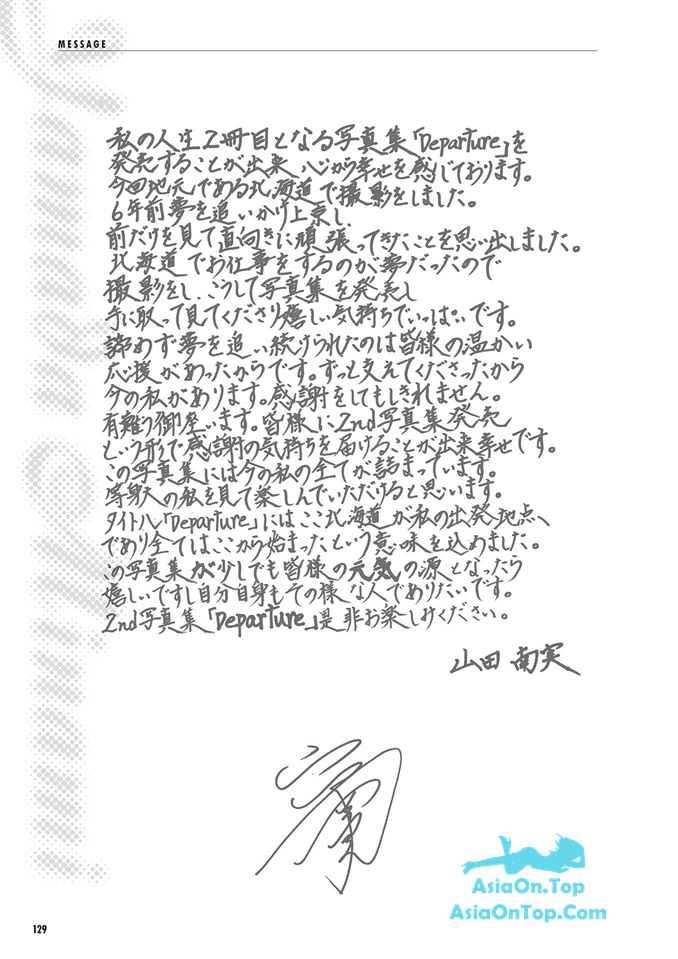 MESSAGE
私の人生2冊目となる写真集「Departure」を
発売することが出来 心から幸せを感じております。
今回地元である北海道で撮影をしました。
6年前夢を追いかけ上京し、
前だけを見て直向きに頑張ってきたことを思い出しました。
北海道でお仕事をするのが夢だったので
撮影をし、こうして写真集を発売し
手に取って見てくださり嬉しい気持ちでいっぱいです。
諦めず夢を追い続けられたのは皆様の温かい
応援があったからです。ずっと支えてくださったから
今の私があります。感謝をしてもしきれません。
有難う御座います。皆様に2nd写真集発売
という形で感謝の気持ちを届けることが出来幸せです。
この写真集には今の私の全てが詰まっています。
等身大の私を見て楽しんでいただけると思います。
タイトル「Departure」にはここ北海道が私の出発地点
であり全てはここから始まったという意味を込めました。
この写真集が少しでも皆様の元気の源となったら
嬉しいですし自分自身もその様な人でありたいです。
2nd写真集「Departure」是非お楽しみください。
山田 南実
AsiaOn.Top
AsiaOnTop.Com
129